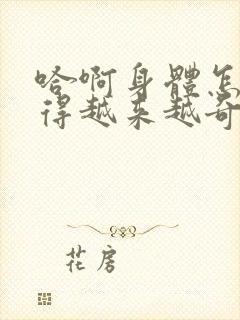 哈啊身體怎
得越来越奇
花房